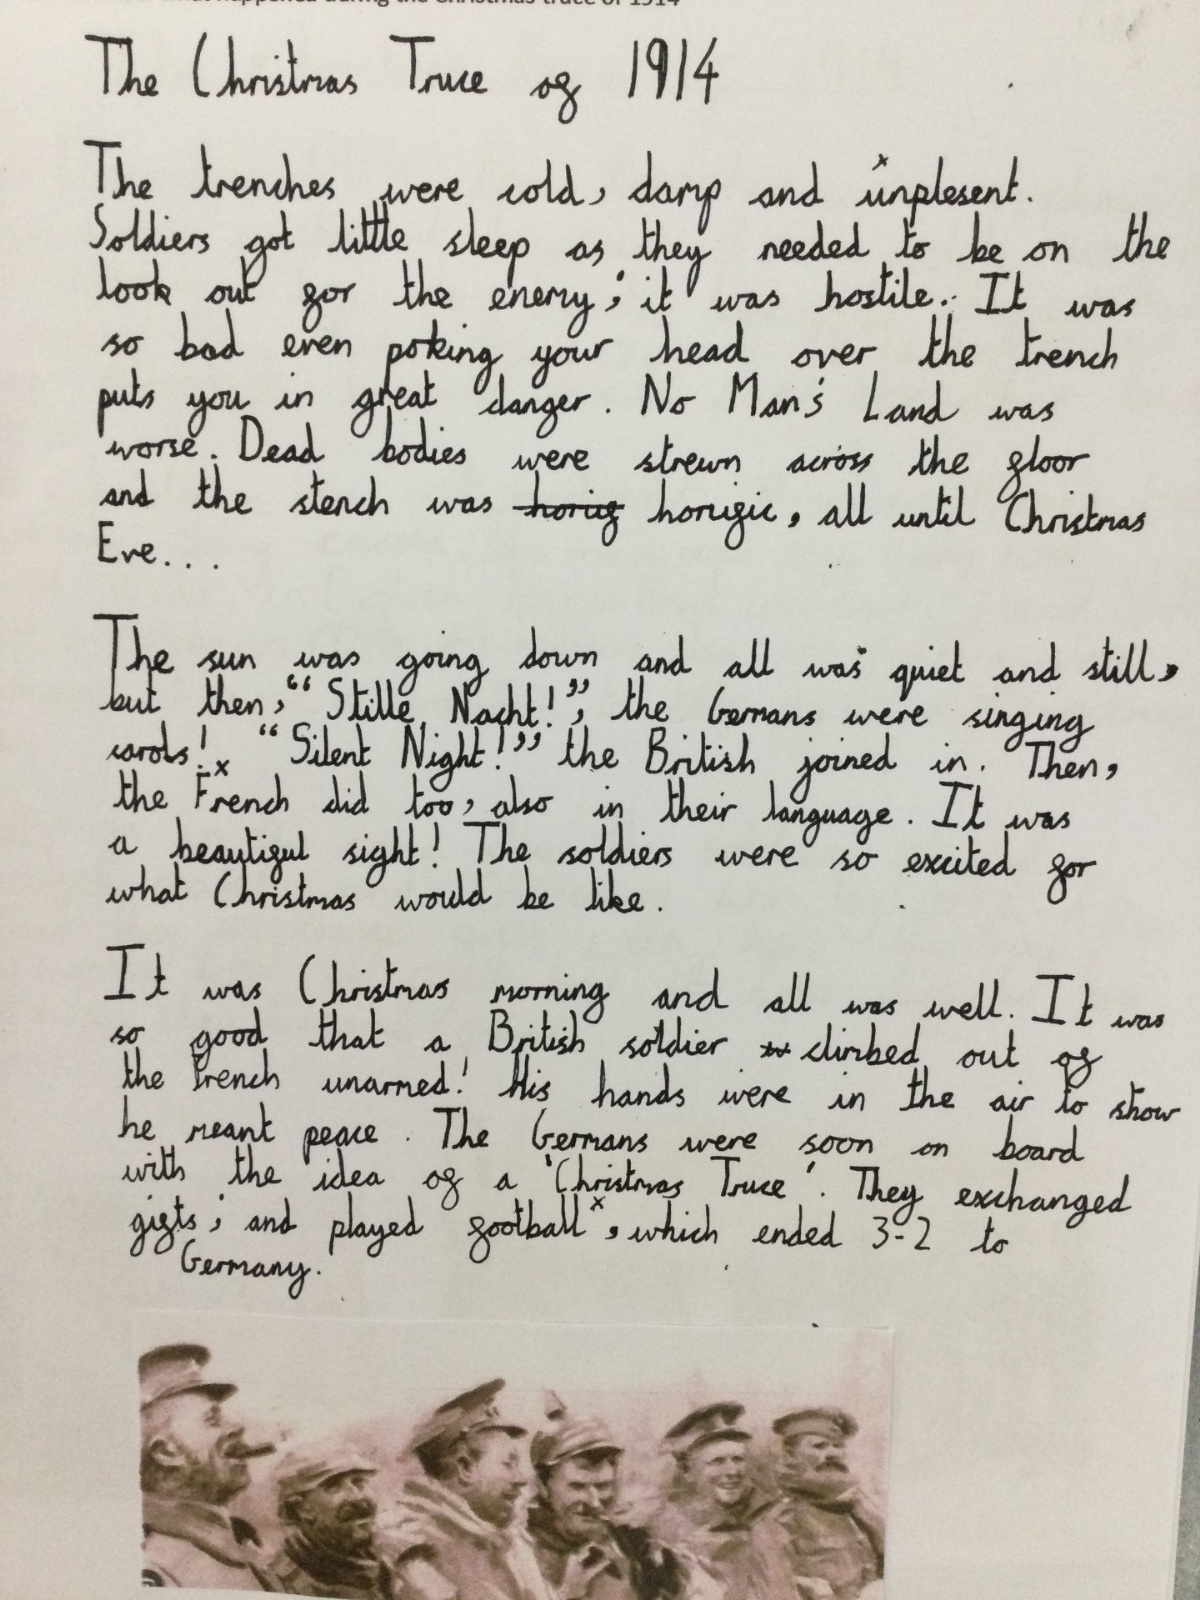 what happened during the Christmas truce of 1914
The Christmas Truce of 1914
The trenches were cold, damp and unplesent.
Soldiers got little sleep as they needed to be on the
look out for the enemy; it was hostile. It was
so bad even poking your head over the trench
puts you in great danger. No Man's Land was
worse. Dead bodies were strewn across the floor
and the stench was horrific, all until Christmas
Eve...
The sun was going down and all was quiet and still,
but then, "Stille Nacht!", the Germans were singing
carols! "Silent Night!" the British joined in. Then,
the French did too, also in their language. It was
a beautiful sight! The soldiers were so excited for
what Christmas would be like.
It was Christmas morning and all was well. It was
so good that a British soldier climbed out of
the trench unarmed! His hands were in the air to show
he meant peace. The Germans were soon on board
with the idea of a 'Christmas Truce'. They exchanged
gifts; and played football, which ended 3-2 to
Germany.